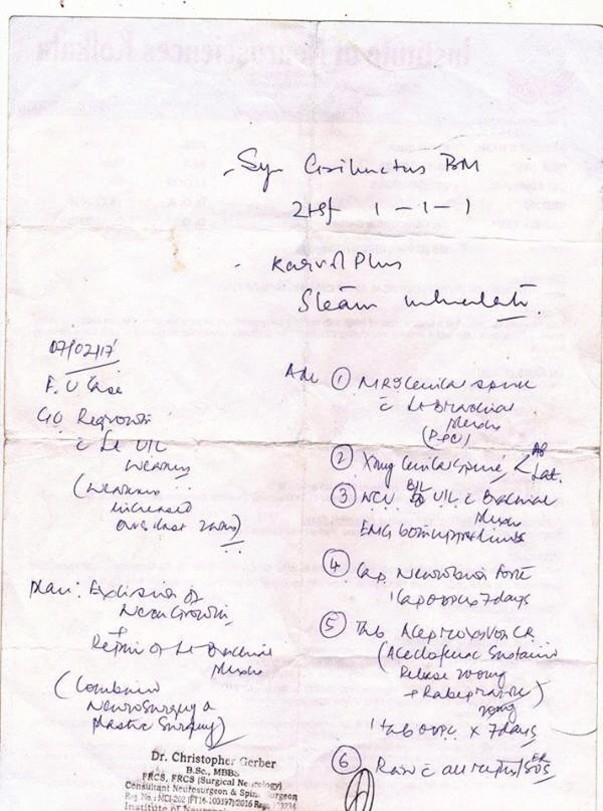 Institute of Neurosciences Kolkata
Syr BM
2tsf 1-1-1
Karvol Plus
Steam
07/02/17
F. U Case
C/O Regrowth
c Lt U/L
Weakness
(Weakness
increased
over last
Plan: Excision of
Growth
+
Repair of Lt Brachial
Plexus
(Combined
Neurosurgery &
Plastic Surgery)
Adv ① MRI Cervical spine
c Lt Brachial
Plexus
② Xray Cervical spine < AP
Lat.
③ NCV B/L U/L c Brachial
Plexus
EMG both upper limbs
④ Cap. Forte
1 cap x 7 days
⑤ Tab CR
(Aceclofenac Sustained
Release 200mg
+ Rabeprazole)
20mg
1 tab x 7 days
⑥ R/w c all reports/SOS
ER
Dr. Christopher Gerber
B.Sc., MBBS
FRCS, FRCS (Surgical Neurology)
Consultant Neurosurgeon & Spine Surgeon
Institute of